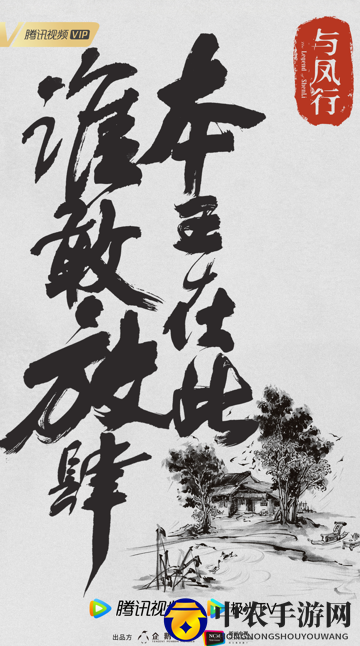 腾讯视频 VIP
与凤行
The Legend of ShenLi
本王在此
谁敢放肆
腾讯视频
极光TV
出品方
企鹅
中农手游网